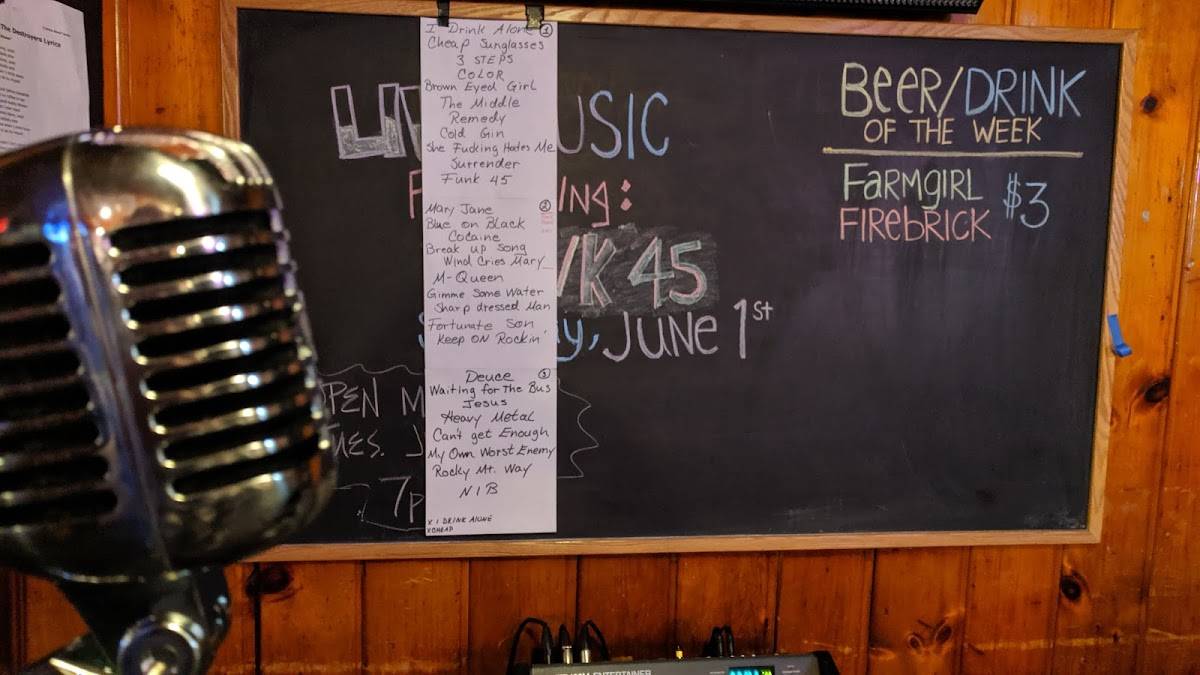 The Destroyers Lyrics
I Drink Alone 1
Cheap Sunglasses
3 STEPS
COLOR
Brown Eyed Girl
The Middle
Remedy
Cold Gin
She Fucking Hates Me
Surrender
Funk 45
Mary Jane 2
Blue on Black
Cocaine
Break up Song
Wind Cries Mary
M-Queen
Gimme Some Water
Sharp dressed Man
Fortunate Son
Keep ON Rockin'
Deuce 3
Waiting for The Bus
Jesus
Heavy Metal
Can't get Enough
My Own Worst Enemy
Rocky Mt. Way
NIB
x I DRINK ALONE
x CHEAP
USIC
ing:
K 45
y, JUNE 1st
PEN M
UES. J
7p
BEER/DRINK
OF THE WEEK
FARMGIRL
FIREBRICK
$3
ENTERTAINER